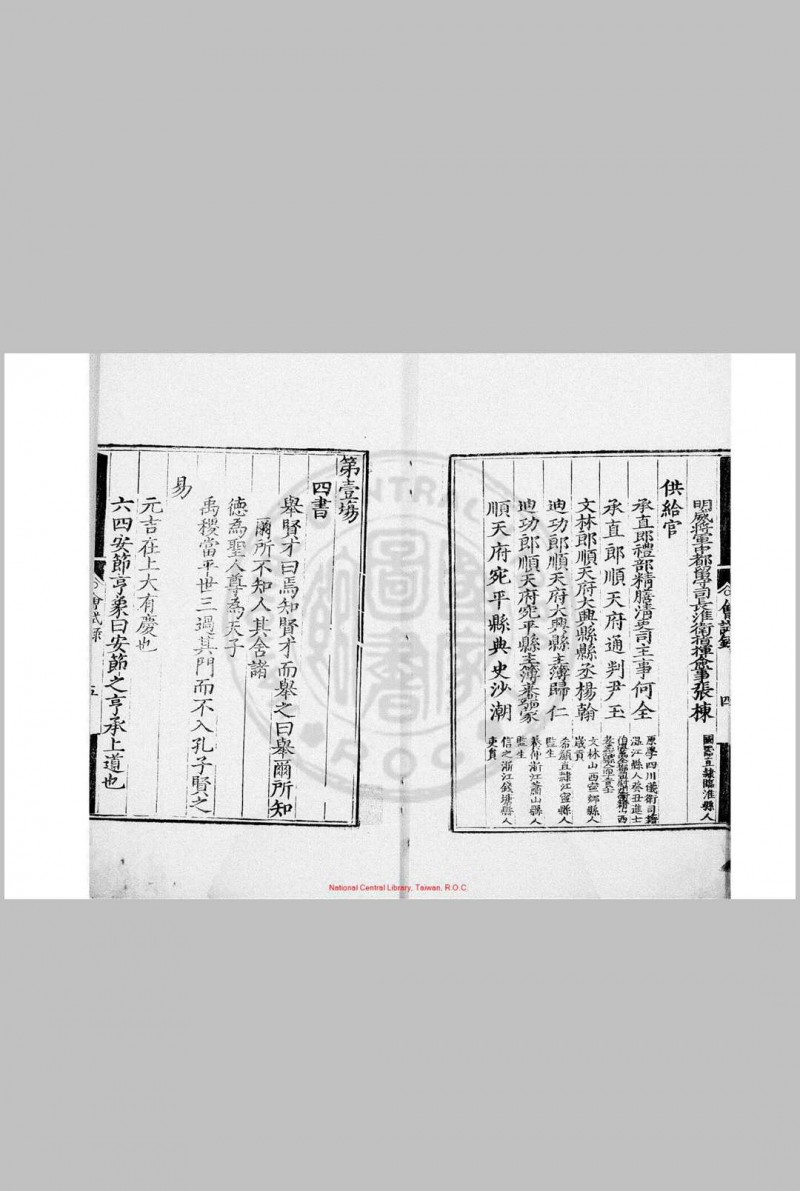 明威將軍中都留守司長淮衛指揮僉事張棟 國器直隸臨淮縣人
供給官
承直郎禮部精膳清吏司主事何全 四川儀衛司籍溫江縣人癸丑進士
承直郎順天府通判尹玉
文林郎順天府大興縣縣丞楊翰 文林山西寧鄉縣人歲貢
迪功郎順天府大興縣主簿歸仁 希顏直隸江寧縣人監生
迪功郎順天府宛平縣主簿來 家 浙江蕭山縣人監生
順天府宛平縣典史沙潮 信之浙江錢塘縣人吏員
會試錄 四
第壹場
四書
舉賢才曰焉知賢才而舉之曰舉爾所知
爾所不知人其舍諸
德為聖人尊為天子
禹稷當平世三過其門而不入孔子賢之
易
元吉在上大有慶也
六四安節亨象曰安節之亨承上道也
會試錄 五
National Central Library, Taiwan, R.O.C.